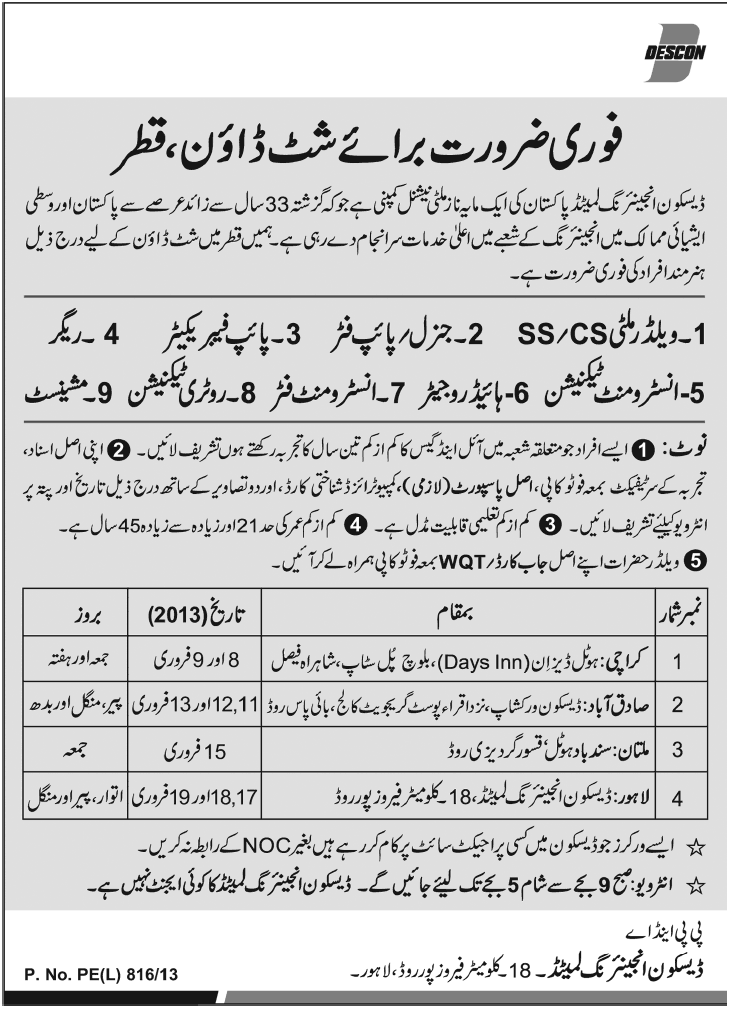 DESCON
فوری ضرورت برائے شٹ ڈاؤن، قطر
ڈیسکون انجینئرنگ لمیٹڈ پاکستان کی ایک مایہ ناز ملٹی نیشنل کمپنی ہے جو کہ گزشتہ 33 سال سے زائد عرصے سے پاکستان اور وسطی
ایشیائی ممالک میں انجینئرنگ کے شعبے میں اعلیٰ خدمات سرانجام دے رہی ہے۔ ہمیں قطر میں شٹ ڈاؤن کے لیے درج ذیل
ہنرمند افراد کی فوری ضرورت ہے۔
1۔ ویلڈر ملٹی SS/CS 2۔ جنرل/ پائپ فٹر 3۔ پائپ فیبریکیٹر 4۔ ریگر
5۔ انسٹرومنٹ ٹیکنیشن 6۔ ہائیڈروجیٹر 7۔ انسٹرومنٹ فٹر 8۔ روٹری ٹیکنیشن 9۔ مشینسٹ
نوٹ: 1 ایسے افراد جو متعلقہ شعبہ میں آئل اینڈ گیس کا کم از کم تین سال کا تجربہ رکھتے ہوں تشریف لائیں۔ 2 اپنی اصل اسناد،
تجربہ کے سرٹیفکیٹ بمعہ فوٹو کاپی، اصل پاسپورٹ (لازمی)، کمپیوٹرائزڈ شناختی کارڈ، اور دو تصاویر کے ساتھ درج ذیل تاریخ اور پتہ پر
انٹرویو کیلئے تشریف لائیں۔ 3 کم از کم تعلیمی قابلیت مڈل ہے۔ 4 کم از کم عمر کی حد 21 اور زیادہ سے زیادہ 45 سال ہے۔
5 ویلڈر حضرات اپنے اصل جاب کارڈ/ WQT بمعہ فوٹو کاپی ہمراہ لے کر آئیں۔
نمبر شمار بمقام تاریخ (2013) بروز
1 کراچی: ہوٹل ڈیز اِن (Days Inn)، بلوچ پُل سٹاپ، شاہراہ فیصل 8 اور 9 فروری جمعہ اور ہفتہ
2 صادق آباد: ڈیسکون ورکشاپ، نزد اقراء پوسٹ گریجویٹ کالج، بائی پاس روڈ 11,12 اور 13 فروری پیر، منگل اور بدھ
3 ملتان: سندباد ہوٹل، قسور گردیزی روڈ 15 فروری جمعہ
4 لاہور: ڈیسکون انجینئرنگ لمیٹڈ، 18۔ کلومیٹر فیروزپور روڈ 17,18 اور 19 فروری اتوار، پیر اور منگل
☆ ایسے ورکرز جو ڈیسکون میں کسی پراجیکٹ سائٹ پر کام کر رہے ہیں بغیر NOC کے رابطہ نہ کریں۔
☆ انٹرویو: صبح 9 بجے سے شام 5 بجے تک لیئے جائیں گے۔ ڈیسکون انجینئرنگ لمیٹڈ کا کوئی ایجنٹ نہیں ہے۔
پی پی اینڈ اے
ڈیسکون انجینئرنگ لمیٹڈ۔ 18۔ کلومیٹر فیروزپور روڈ، لاہور۔
P. No. PE(L) 816/13